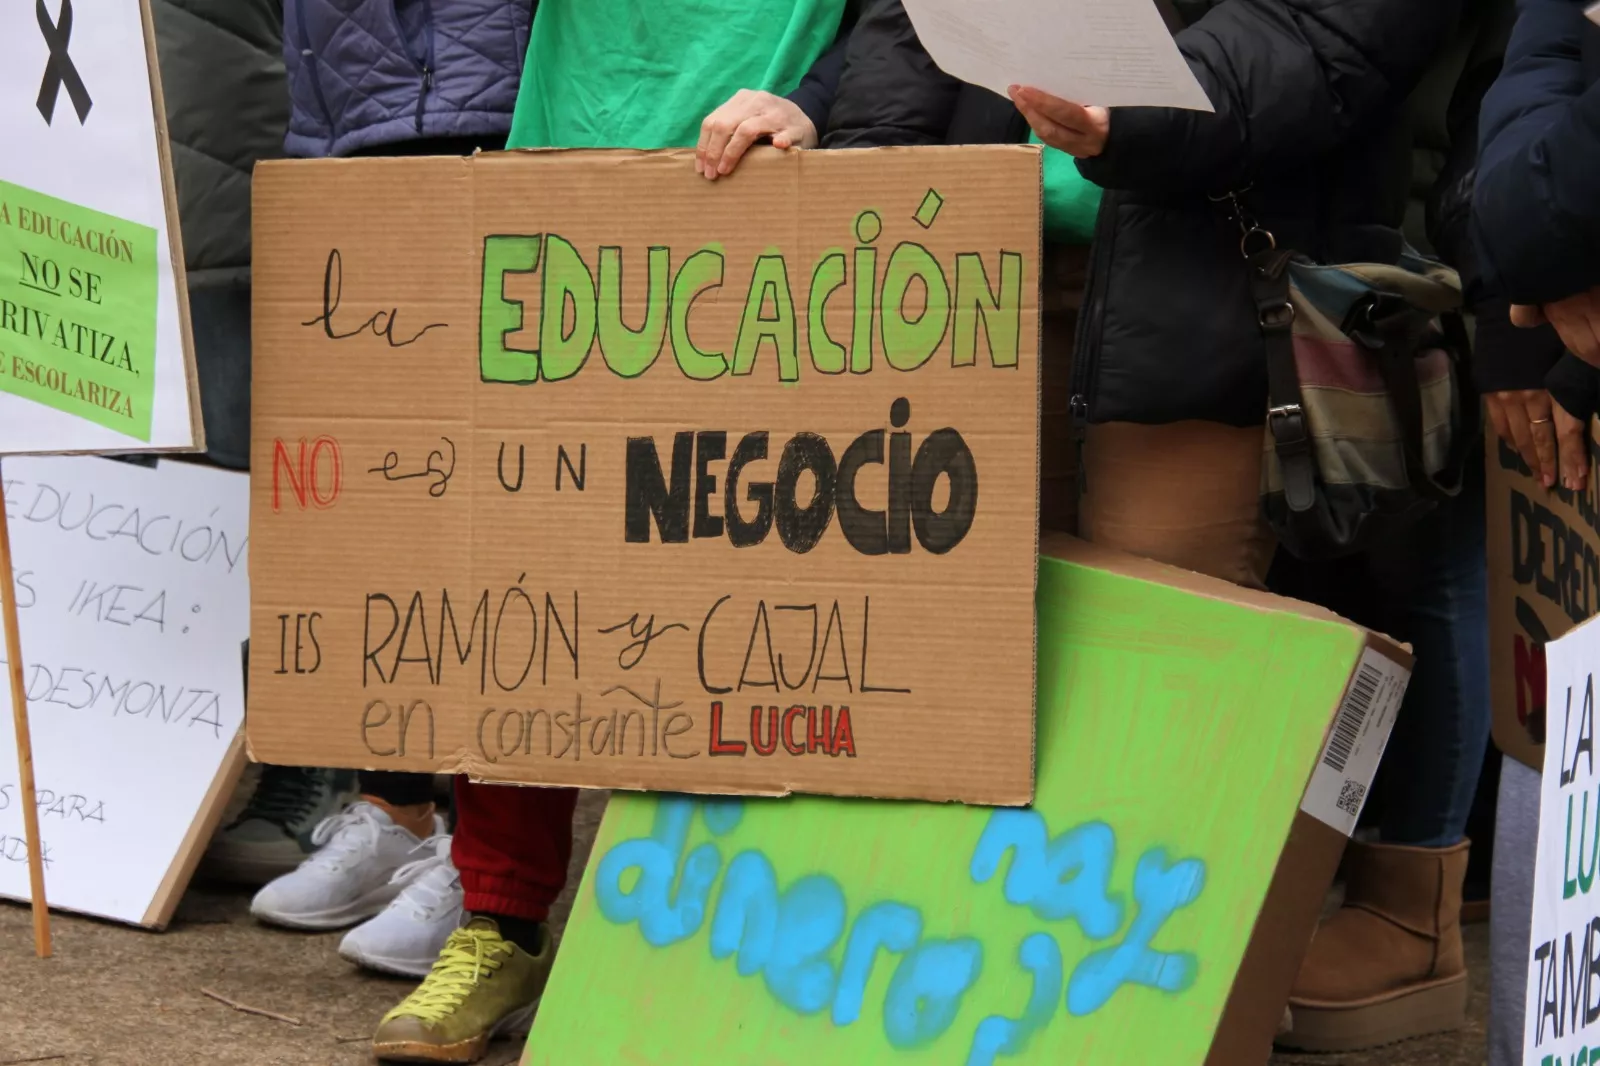 EDUCACIÓN
NO SE
ESCOLARIZA
la EDUCACIÓN
NO es UN NEGOCIO
IES RAMÓN y CAJAL
en constante LUCHA
EDUCACIÓN
IKEA:
DESMONTA
PARA
dinero hay
LA